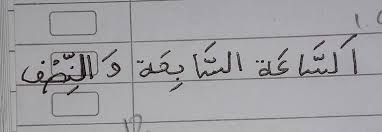 اَلسَّاعَة السَّابِعَة وَ النِّصْف